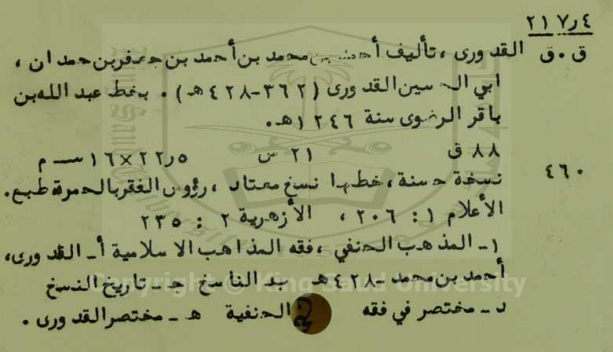 ٢١٧٫٤
ق ٠ ق القدورى ، تأليف أحمد بن محمد بن أحمد بن جعفر بن حمدان ،
ابي الحسين القدورى (٣٦٢-٤٢٨هـ) . بخط عبد الله بن
باقر الرضوى سنة ١٢٤٦هـ.
٨٨ ق ٢١ س ٢٢٫٥×١٦ سـم
٤٦٠ نسخة حسنة ، خطها نسخ معتاد ، رؤوس الفقر بالحمرة طبع.
الأعلام ١ : ٢٠٦ ، الأزهرية ٢ : ٢٣٥
١- المذهب الحنفي ، فقه المذاهب الاسلامية أ- القدورى،
أحمد بن محمد -٤٢٨هـ ب- الناسخ جـ- تاريخ النسخ
د- مختصر في فقه الحنفية هـ - مختصر القدورى .
Copyright © King Saud University